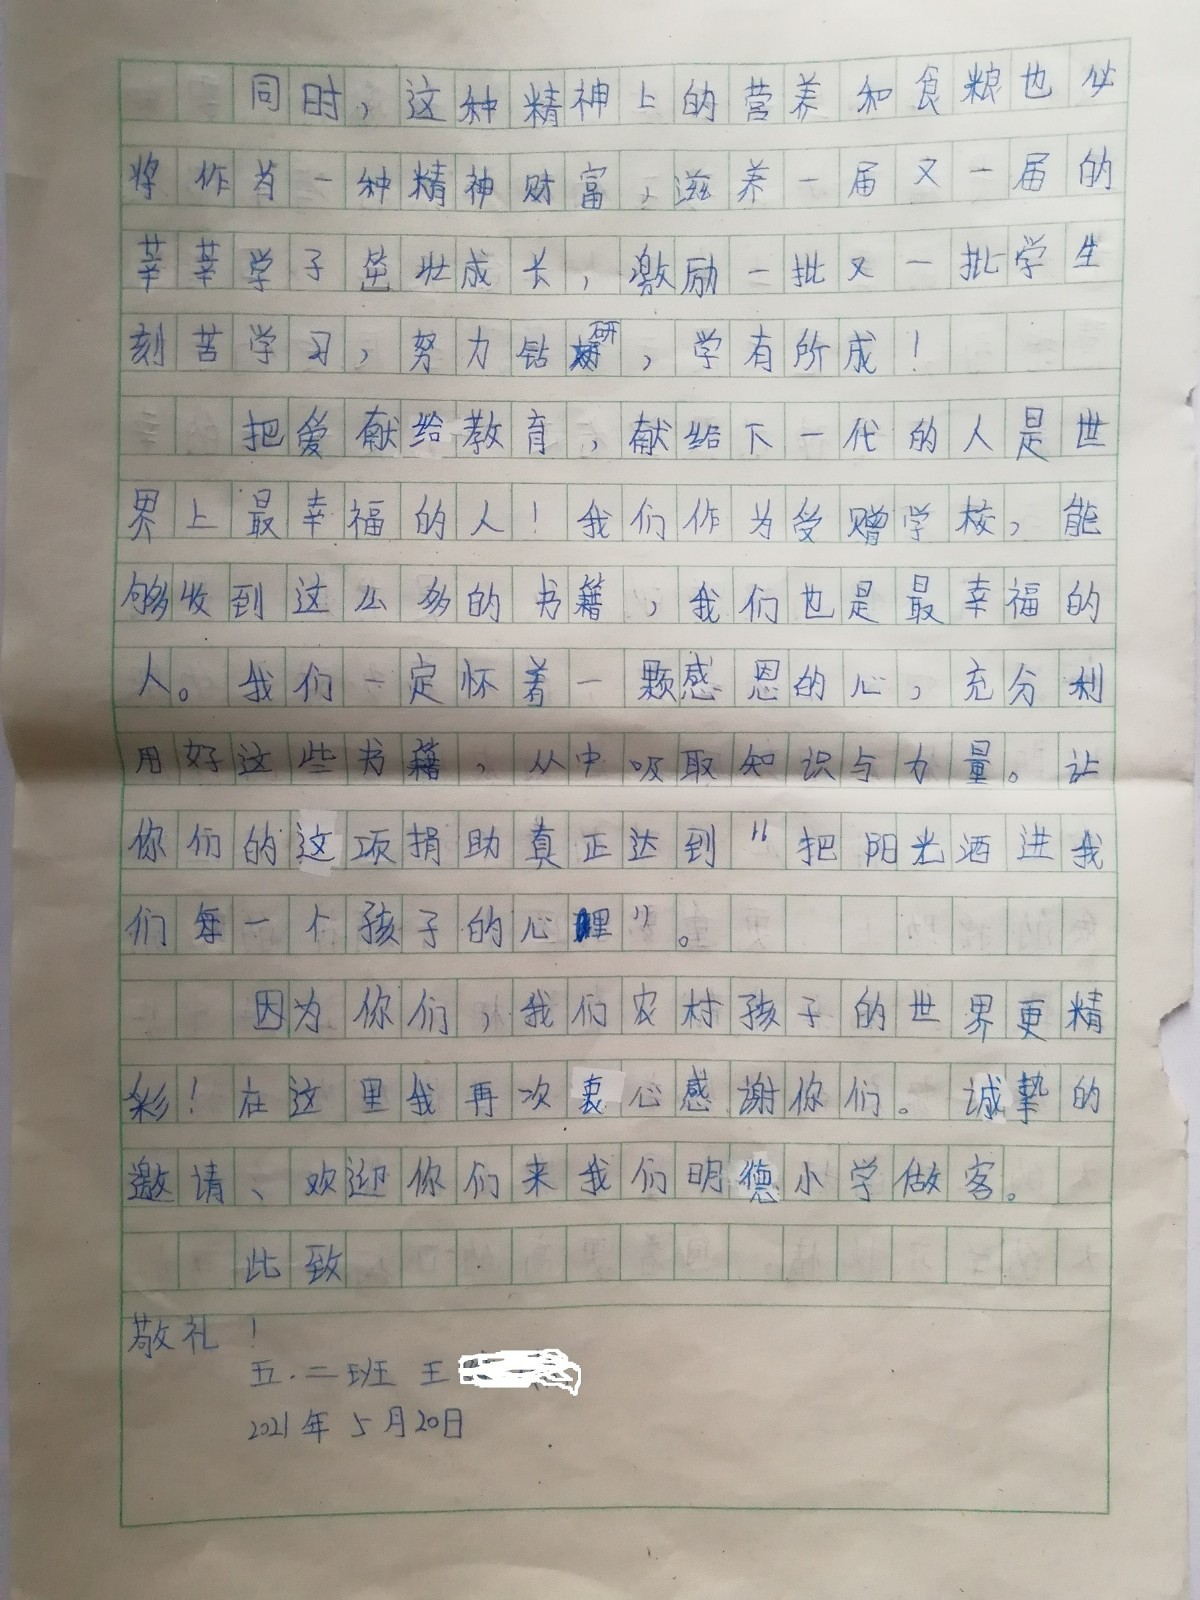 同时，这种精神上的营养和食粮也必
将作为一种精神财富，滋养一届又一届的
莘莘学子茁壮成长，激励一批又一批学生
刻苦学习，努力钻研，学有所成！
把爱献给教育，献给下一代的人是世
界上最幸福的人！我们作为受赠学校，能
够收到这么多的书籍，我们也是最幸福的
人。我们一定怀着一颗感恩的心，充分利
用好这些书籍，从中吸取知识与力量。让
你们的这项捐助真正达到"把阳光洒进我
们每一个孩子的心裡"。
因为你们，我们农村孩子的世界更精
彩！在这里我再次衷心感谢你们。诚挚的
邀请、欢迎你们来我们明德小学做客。
此致
敬礼！
五.二班 王
2021年5月20日